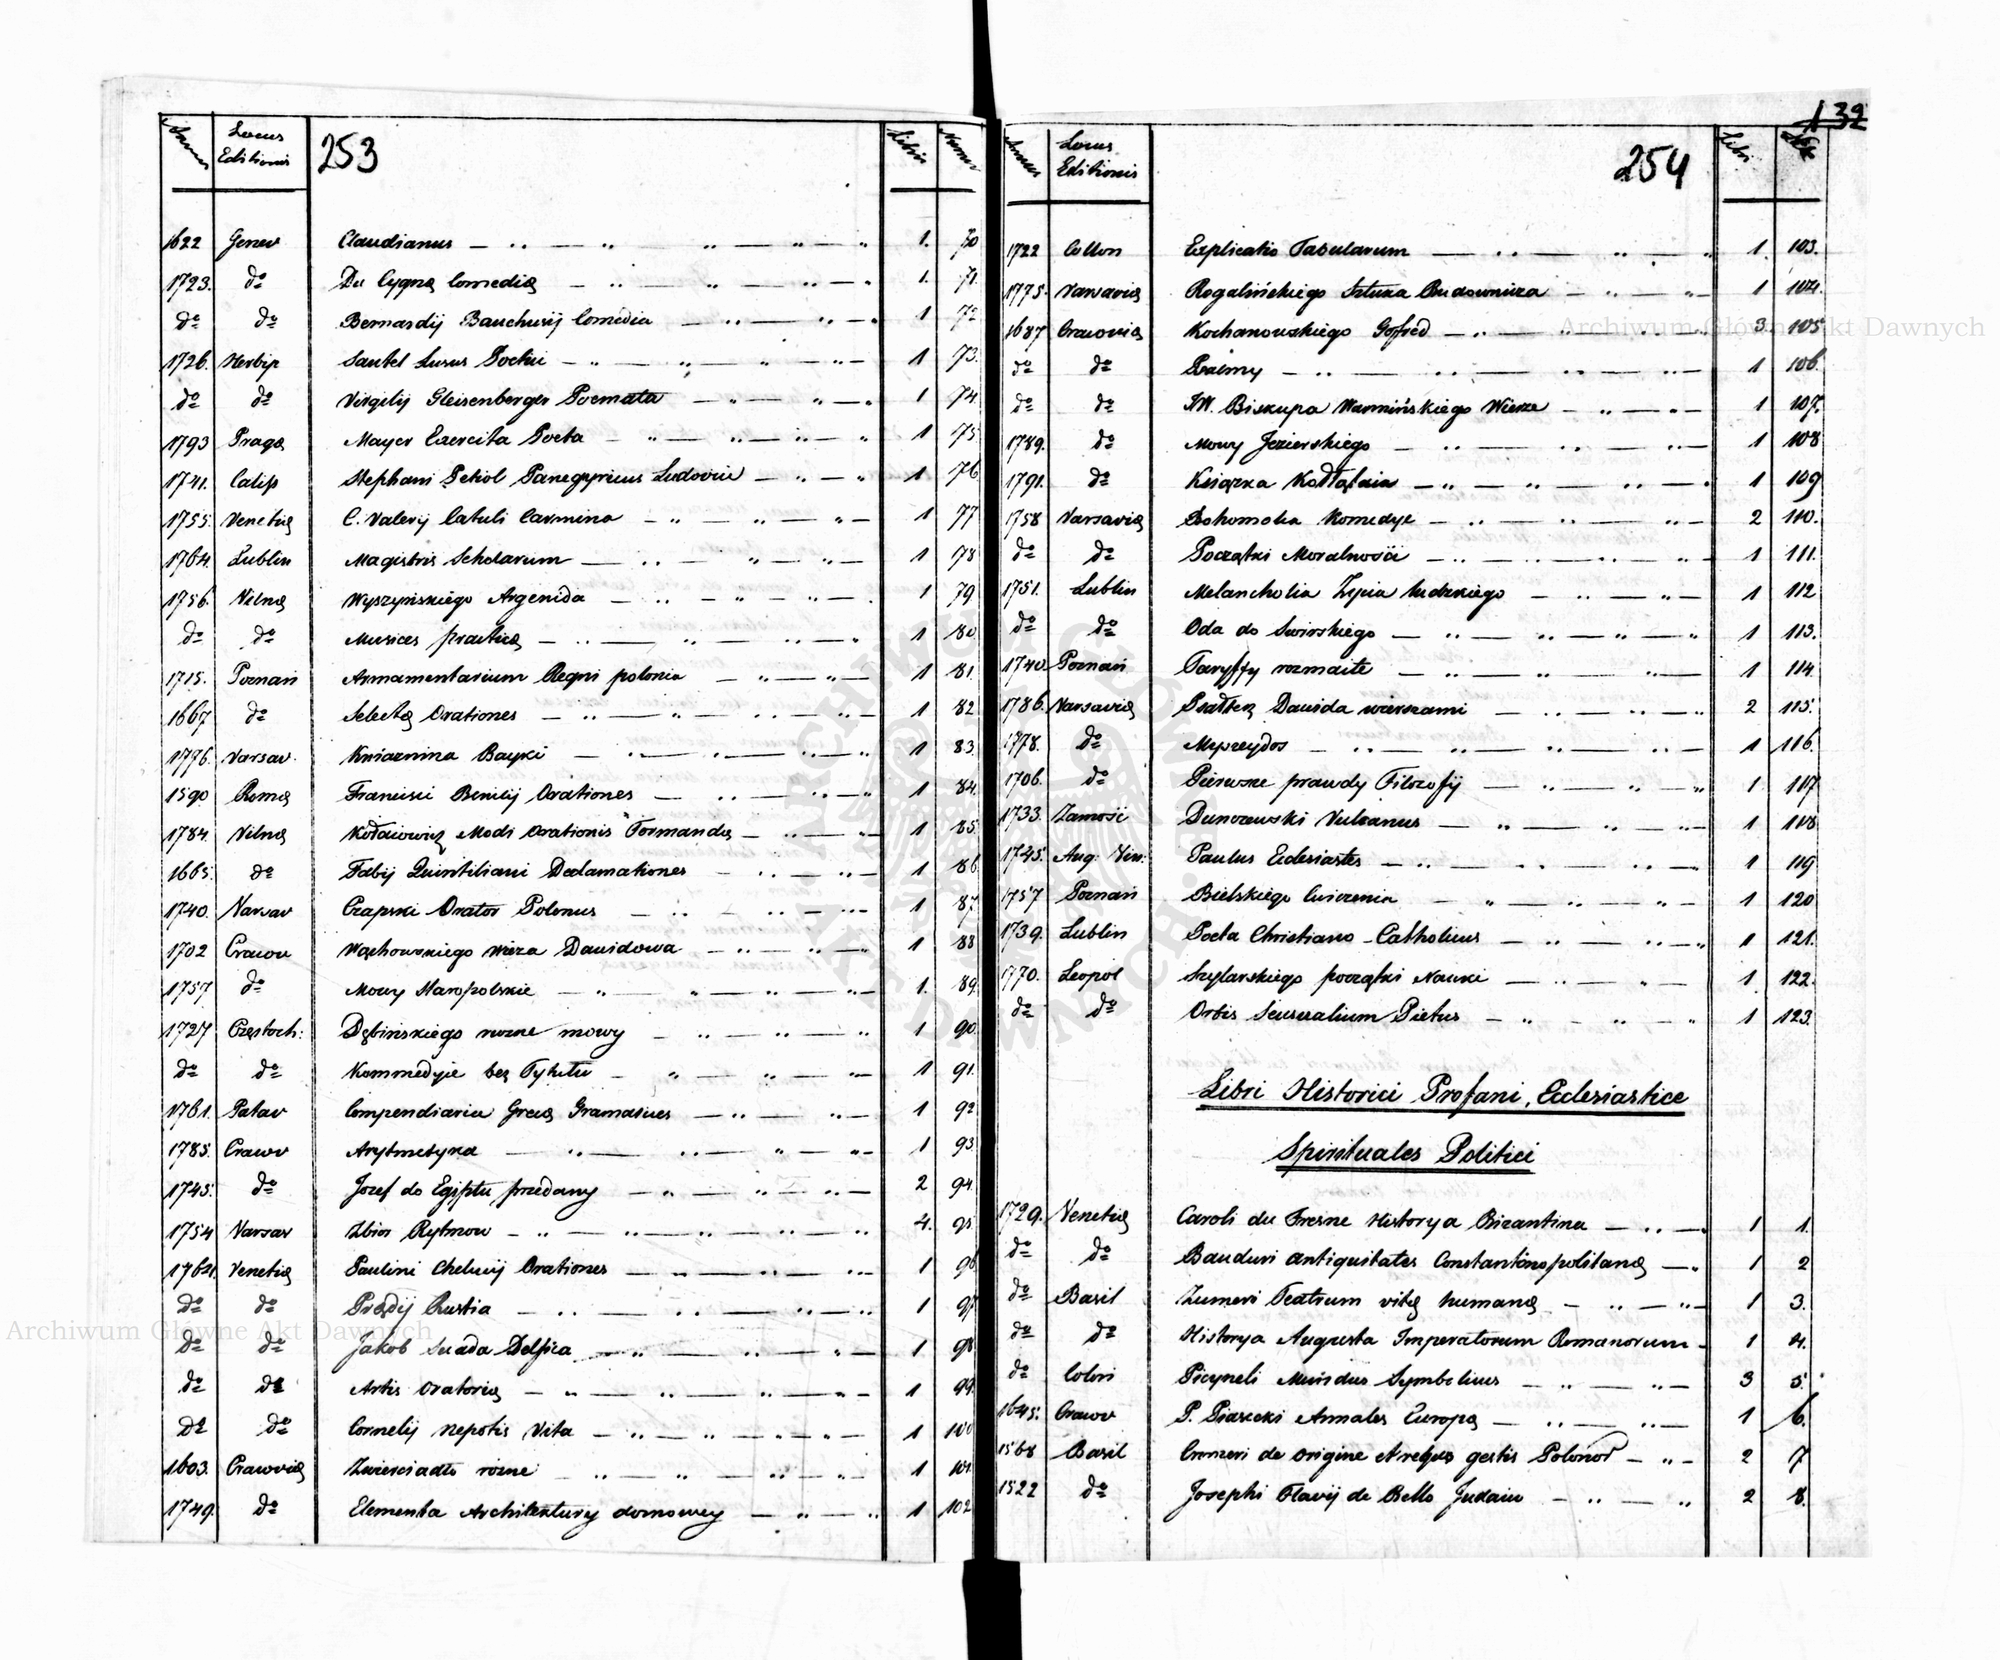 Annus Locus Editionis 253 Libri Numer
1622 Genev Claudianus 1. 70
1723. do Du Cygnę Comedię 1. 71.
do do Bernardij Bauchusij Comedia 1 72
1726. Herbip Sautel Lusus Poetici 1 73.
do do Virgilij Gleisenberger Poemata 1 74.
1793 Pragę Mayer Exercita Poeta 1 75
1741. Caliss Stephani Pekol Panegyricus Ludovici 1 76
1755. Venetię C. Valerij Catuli Carmina 1 77
1764. Lublin Magistris Scholarum 1 78
1756. Vilnę Wyszyńskiego Argenida 1 79
do do Musices practicę 1 80.
1715. Poznań Armamentarium Regni polonia 1 81.
1667 do Selectę Orationes 1 82.
1776. Varsav. Kniaznina Bayki 1 83.
1590 Romę Francisci Bencij Orationes 1 84.
1784. Vilnę Kołaiowicz Modi Orationis Formandę 1 85.
1665. do Fabij Quintiliani Declamationes 1 86
1740. Varsav Czapski Orator Polonus 1 87.
1702 Cracov Wąchowskiego Wieza Dawidowa 1 88
1757 do Mowy Staropolskie 1. 89.
1727 Częstoch: Dębińskiego rozne mowy 1 90.
do do Kommedyie bez Tytułu 1 91.
1761. Patav Compendiaria Greca Gramatices 1 92
1785. Cracov Arytmetyka 1 93
1745. do Jozef do Egiptu przedany 2 94.
1754 Varsav Zbior Rytmow 4. 95.
1764. Venetię Paulini Chelucij Orationes 1 96
do do Prędij Rustia 1 97.
do do Jakob Suada Delfica 1 98
do do Artis Oratorię 1 99.
do do Cornelij Nepotis Vita 1 100
1603. Cracovię Zwierciadło rozne 1 101.
1749. do Elementa Architektury domowey 1 102
132
Annus Locus Editionis 254 Libri
1722 Collon Explicatio Tabularum 1. 103.
1775. Varsavię Rogalińskiego Sztuka Budownicza 1 104.
1687 Cracovię Kochanowskiego Goffred 3. 105
do do Psalmy 1 106.
do do JW. Biskupa Warmińskiego Wiersze 1 107.
1789. do Mowy Jezierskiego 1 108
1791. do Książka Kołłątaia 1 109
1758 Varsavię Bohomolca Komedye 2 110.
do do Początki Moralności 1 111.
1751. Lublin Melancholia Zycia ludzkiego 1 112
do do Oda do Swirskiego 1 113.
1740. Poznań Taryffy rozmaite 1 114.
1786. Varsavię Psałterz Dawida wierszami 2 115.
1778. do Myszeydos 1 116.
1706. do Pierwsze prawdy Filozofij 1 117
1733. Zamość Dunczewski Vulcanus 1 118
1745. Aug: Vin: Paulus Ecclesiastes 1 119
1757 Poznań Bielskiego Cwiczenia 1 120
1739. Lublin Poeta Christiano-Catholicus 1 121.
1770. Leopol Szylarskiego początki Nauki 1 122.
do do Orbis Sensualium Pictus 1 123.
Libri Historici Profani, Ecclesiastice
Spirituales Politici
1729. Venetię Caroli du Fresne Historya Bizantina 1 1.
do do Banduri Antiquitates Constantinopolitanę 1 2
do Basil Zumeri Teatrum vitę humanę 1 3.
do do Historya Augusta Imperatorum Romanorum 1 4.
do Colon Picyneli Mundus Symbolicus 3 5.
1645. Cracov P. Piasecki Annales Europę 1 6.
1568 Basil Cromeri de origine et rebus gestis Polonor 2 7
1522 do Josephi Flavij de Bello Judaico 2 8.
Archiwum Główne Akt Dawnych
Archiwum Główne Akt Dawnych